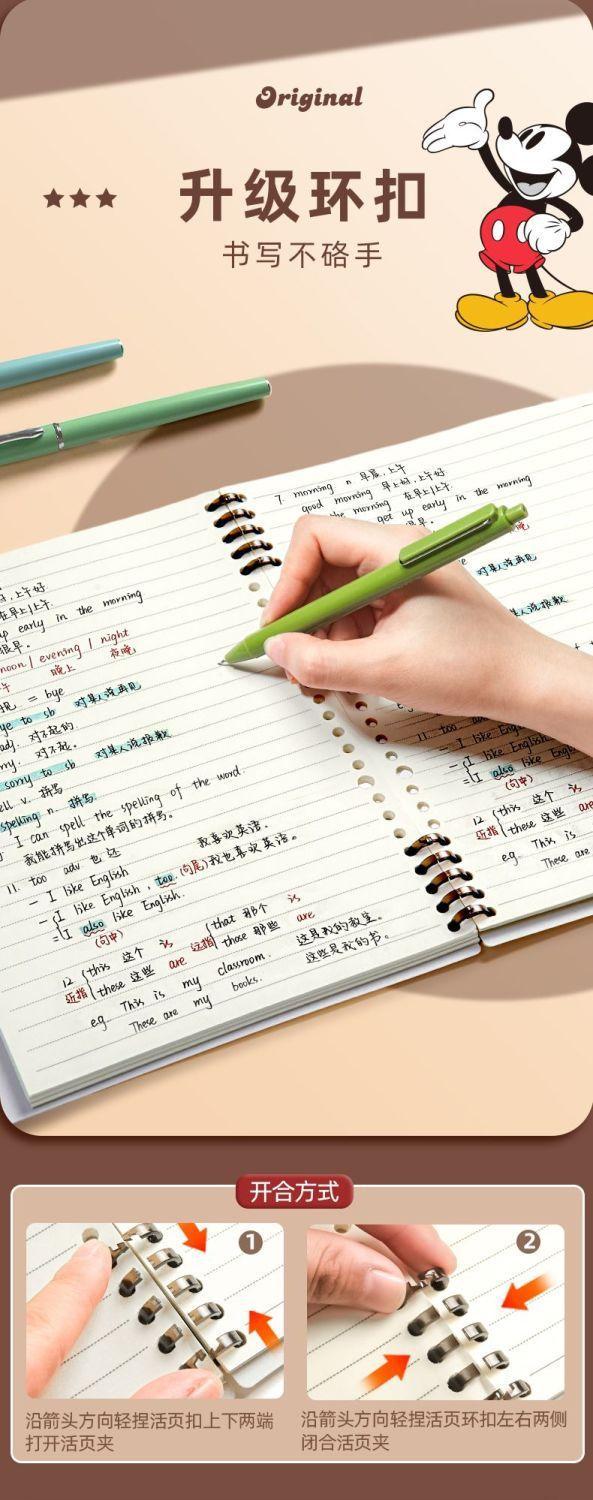 Original
升级环扣
书写不硌手
7. morning n 早晨,上午
good morning 早上好,上午好
the morning 在早上|上午
get up early in the morning
对某人说再见
对某人说抱歉
- I like English
- I like English
= I also like English
(句中)
12 (this 这个
近指 these 这些 are
eg. This is
These are
好,上午好
在早上|上午.
up early in the morning
很早.
noon / evening / night
午 晚上 夜晚
见 = bye
bye to sb 对某人说再见
对不起的
对不起.
sorry to sb 对某人说抱歉
spell v. 拼写
spelling n. 拼写
I can spell the spelling of the word.
我能拼写出这个单词的拼写。
11. too adv 也 还
- I like English 我喜欢英语.
- I like English, too.(句尾)我也喜欢英语。
= I also like English.
(句中)
12 this 这个 is that 那个 is
近指 these 这些 are 远指 those 那些 are
eg This is my classroom. 这是我的教室。
These are my books. 这些是我的书。
开合方式
1
2
沿箭头方向轻捏活页扣上下两端
打开活页夹
沿箭头方向轻捏活页环扣左右两侧
闭合活页夹